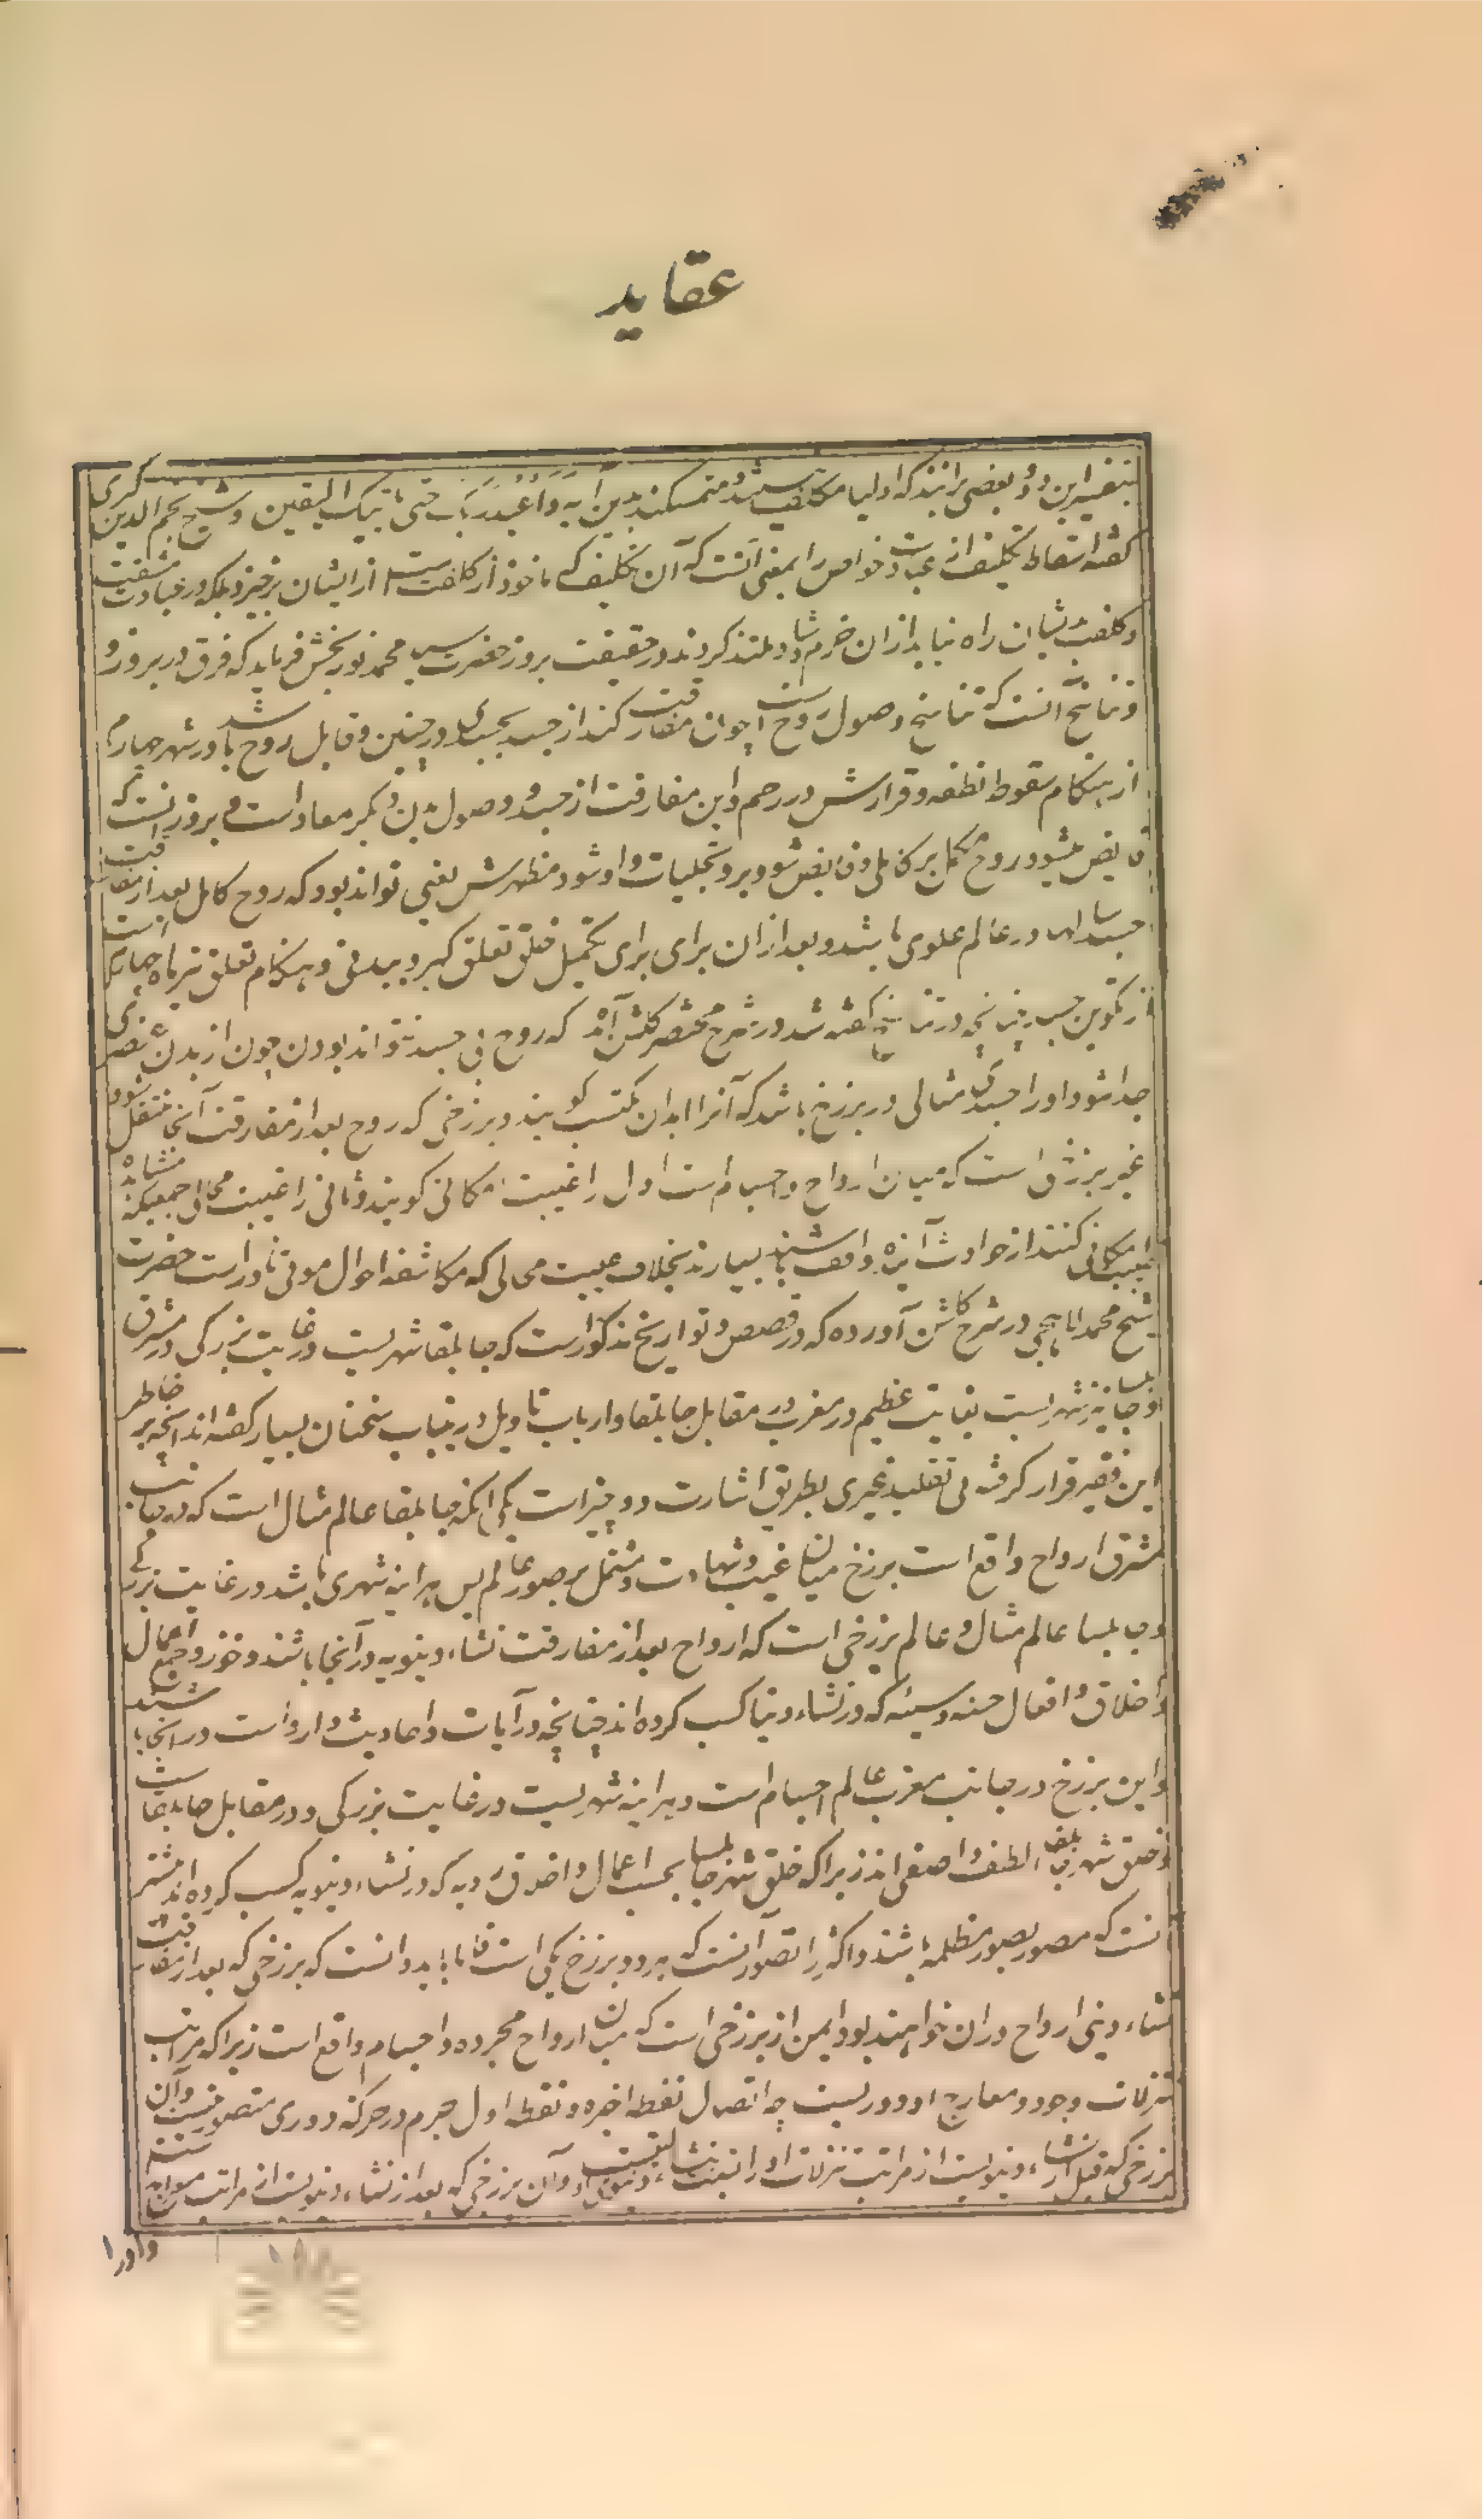 عقاید
بتفسیر این دو و بعضی برانند که اولیا مکلف نیستند و متمسکند بدین آیه وَاعْبُدْ رَبَّکَ حَتّی یَاتِیَکَ الیقین و شیخ نجم الدین کبری
گفته اسقاط تکلیف از عبادت خواص را بمعنی آنست که آن تکلیف که ماخوذ از کلفت است از ایشان برخیزد بلکه در عبادت مشقت
و کلفت بدیشان راه نیابد ازان خرم و شاد و ملتذ کردند در حقیقت بروز حضرت سید محمد نوربخش فرماید که فرق در بروز و
و تناسخ آنست که تناسخ وصول روح است چون مفارقت کند از جسد بجسدی در چنین و قابل روح باشد در شهر چهارم
از هنکام سقوط نطفه و قرارش در رحم و این مفارقت از جسد و وصول بدن دیکر معاد است و بروز آنست که
فایض میشود روح مکمل بر کاملی و فایض شود برو تجلیات و او شود مظهرش یعنی تواند بود که روح کامل بعد از مفارقت
جسد سالها در عالم علوی باشد و بعد ازان برای برای تکمیل خلق تعلق کیرد ببدنی و هنکام تعلق نیز ماه چهارم است
از تکوین جسد چنانچه در تناسخ گفته شد در شرح مختصر گلشن آمده که روح بی جسد نتواند بودن چون از بدن عنصری
جدا شود او را جسدی مثالی در برزخ باشد که آنرا ابدان مکتسب کویند و برزخی که روح بعد از مفارقت آنجا منتقل شود
غیر برزخی است که میان ارواح و اجسام است اول را غیبت امکانی کویند و ثانی را غیبت محالی جمعیکه مشاهده
غیبت امکانی کنند از حوادث آینده واقف باشند بسیارند بخلاف غیبت محالی که مکاشفه احوال موتی نادر است حضرت
شیخ محمد لاهیجی در شرح گلشن آورده که در قصص و تواریخ مذکور است که جابلقا شهریست در غایت بزرکی در مشرق
و جابلسا نیز شهریست بغایت عظیم در مغرب در مقابل جابلقا و ارباب تاویل درینباب سخنان بسیار گفته اند آنچه بر خاطر
این فقیر قرار گرفته بی تقلید غیری بطریق اشارت دو چیز است یکی انکه جابلقا عالم مثال است که در جانب
مشرق ارواح واقع است برزخ میان غیب و شهادت و مشتمل بر صور عالم پس هر اینه شهری باشد در غایت بزرکی
و جابلسا عالم مثال و عالم برزخی است که ارواح بعد از مفارقت نشاء دنیویه در آنجا باشند و جمیع اعمال
و اخلاق و افعال حسنه و سیئه که در نشاء دنیا کسب کرده اند چنانچه در آیات و احادیث وارد است در انجا باشند
و این برزخ در جانب مغرب عالم اجسام است و هر اینه شهریست در غایت بزرکی و در مقابل جابلقا است
و خلق شهر جابلقا الطف و اصفی اند زیرا که خلق شهر جابلسا بحسب اعمال و اخلاق ردیه که در نشاء دنیویه کسب کرده اند بیشتر
آنست که مصور بصور مظلمه باشند و اکثر را تصور آنست که هر دو برزخ یکی است فاما باید دانست که برزخی که بعد از مفارقت
نشاء دینی ارواح دران خواهند بود این از برزخی است که میان ارواح مجرده و اجسام واقع است زیرا که مراتب
تنزلات وجود و معارج او دوریست چه اتصال نقطه اخیره و نقطه اول جرم در حرکت دوری متصور نیست و آن
برزخی که قبل از نشاء دنیویست از مراتب تنزلات او را نسبت بنشاء دنیوی اولیت است و آن برزخی که بعد از نشاء دنیویست از مراتب معارج است
و او را